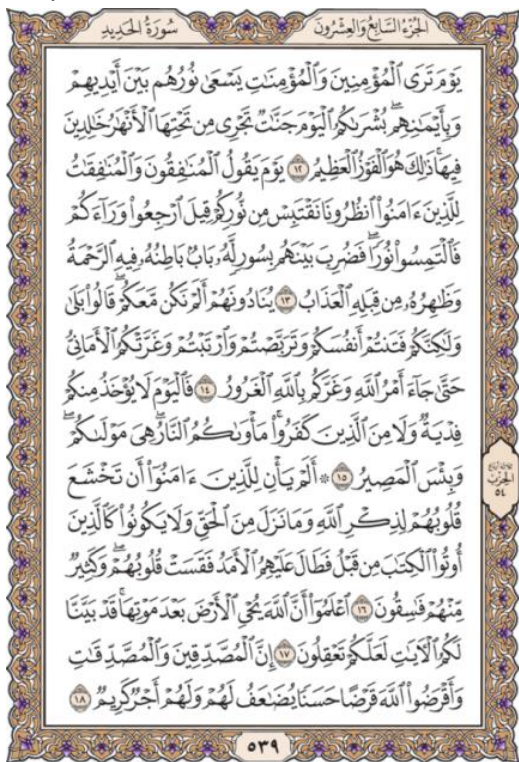 الجُزْءُ السَّابِعُ وَالعِشْرُونَ سُورَةُ الحَدِيدِ
يَوْمَ تَرَى ٱلْمُؤْمِنِينَ وَٱلْمُؤْمِنَٰتِ يَسْعَىٰ نُورُهُم بَيْنَ أَيْدِيهِمْ
وَبِأَيْمَٰنِهِمۖ بُشْرَىٰكُمُ ٱلْيَوْمَ جَنَّٰتٌ تَجْرِى مِن تَحْتِهَا ٱلْأَنْهَٰرُ خَٰلِدِينَ
فِيهَاۚ ذَٰلِكَ هُوَ ٱلْفَوْزُ ٱلْعَظِيمُ ١٢ يَوْمَ يَقُولُ ٱلْمُنَٰفِقُونَ وَٱلْمُنَٰفِقَٰتُ
لِلَّذِينَ ءَامَنُوا۟ ٱنظُرُونَا نَقْتَبِسْ مِن نُّورِكُمْ قِيلَ ٱرْجِعُوا۟ وَرَآءَكُمْ
فَٱلْتَمِسُوا۟ نُورًاۖ فَضُرِبَ بَيْنَهُم بِسُورٍ لَّهُۥ بَابٌۢ بَاطِنُهُۥ فِيهِ ٱلرَّحْمَةُ
وَظَٰهِرُهُۥ مِن قِبَلِهِ ٱلْعَذَابُ ١٣ يُنَادُونَهُمْ أَلَمْ نَكُن مَّعَكُمْۖ قَالُوا۟ بَلَىٰ
وَلَٰكِنَّكُمْ فَتَنتُمْ أَنفُسَكُمْ وَتَرَبَّصْتُمْ وَٱرْتَبْتُمْ وَغَرَّتْكُمُ ٱلْأَمَانِىُّ
حَتَّىٰ جَآءَ أَمْرُ ٱللَّهِ وَغَرَّكُم بِٱللَّهِ ٱلْغَرُورُ ١٤ فَٱلْيَوْمَ لَا يُؤْخَذُ مِنكُمْ
فِدْيَةٌ وَلَا مِنَ ٱلَّذِينَ كَفَرُوا۟ۚ مَأْوَىٰكُمُ ٱلنَّارُۖ هِىَ مَوْلَىٰكُمْۖ
وَبِئْسَ ٱلْمَصِيرُ ١٥ ۞ أَلَمْ يَأْنِ لِلَّذِينَ ءَامَنُوٓا۟ أَن تَخْشَعَ
قُلُوبُهُمْ لِذِكْرِ ٱللَّهِ وَمَا نَزَلَ مِنَ ٱلْحَقِّ وَلَا يَكُونُوا۟ كَٱلَّذِينَ
أُوتُوا۟ ٱلْكِتَٰبَ مِن قَبْلُ فَطَالَ عَلَيْهِمُ ٱلْأَمَدُ فَقَسَتْ قُلُوبُهُمْۖ وَكَثِيرٌ
مِّنْهُمْ فَٰسِقُونَ ١٦ ٱعْلَمُوٓا۟ أَنَّ ٱللَّهَ يُحْىِ ٱلْأَرْضَ بَعْدَ مَوْتِهَاۚ قَدْ بَيَّنَّا
لَكُمُ ٱلْءَايَٰتِ لَعَلَّكُمْ تَعْقِلُونَ ١٧ إِنَّ ٱلْمُصَّدِّقِينَ وَٱلْمُصَّدِّقَٰتِ
وَأَقْرَضُوا۟ ٱللَّهَ قَرْضًا حَسَنًا يُضَٰعَفُ لَهُمْ وَلَهُمْ أَجْرٌ كَرِيمٌ ١٨
الحِزْب
٥٤
٥٣٩